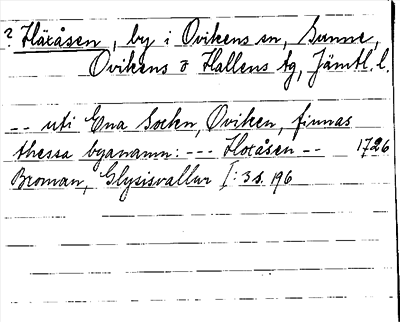 ? Häråsen, by i Ovikens sn, Sunne,
Ovikens o Hallens tg, Jämtl. l.
-- uti Ena Sockn, Oviken, finnas
thessa byanamn: --- Horåsen -- 1726
Broman, Glysisvallur I: 3 s. 196